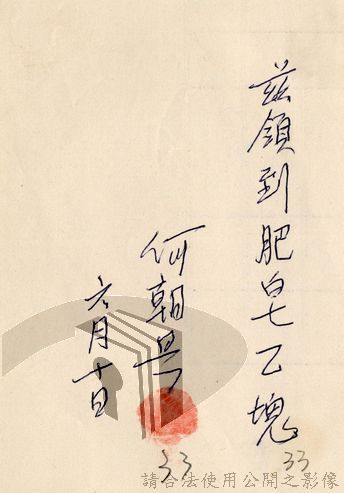 兹領到肥皂乙塊
33
何朝
33
六月十日
請合法使用公開之影像